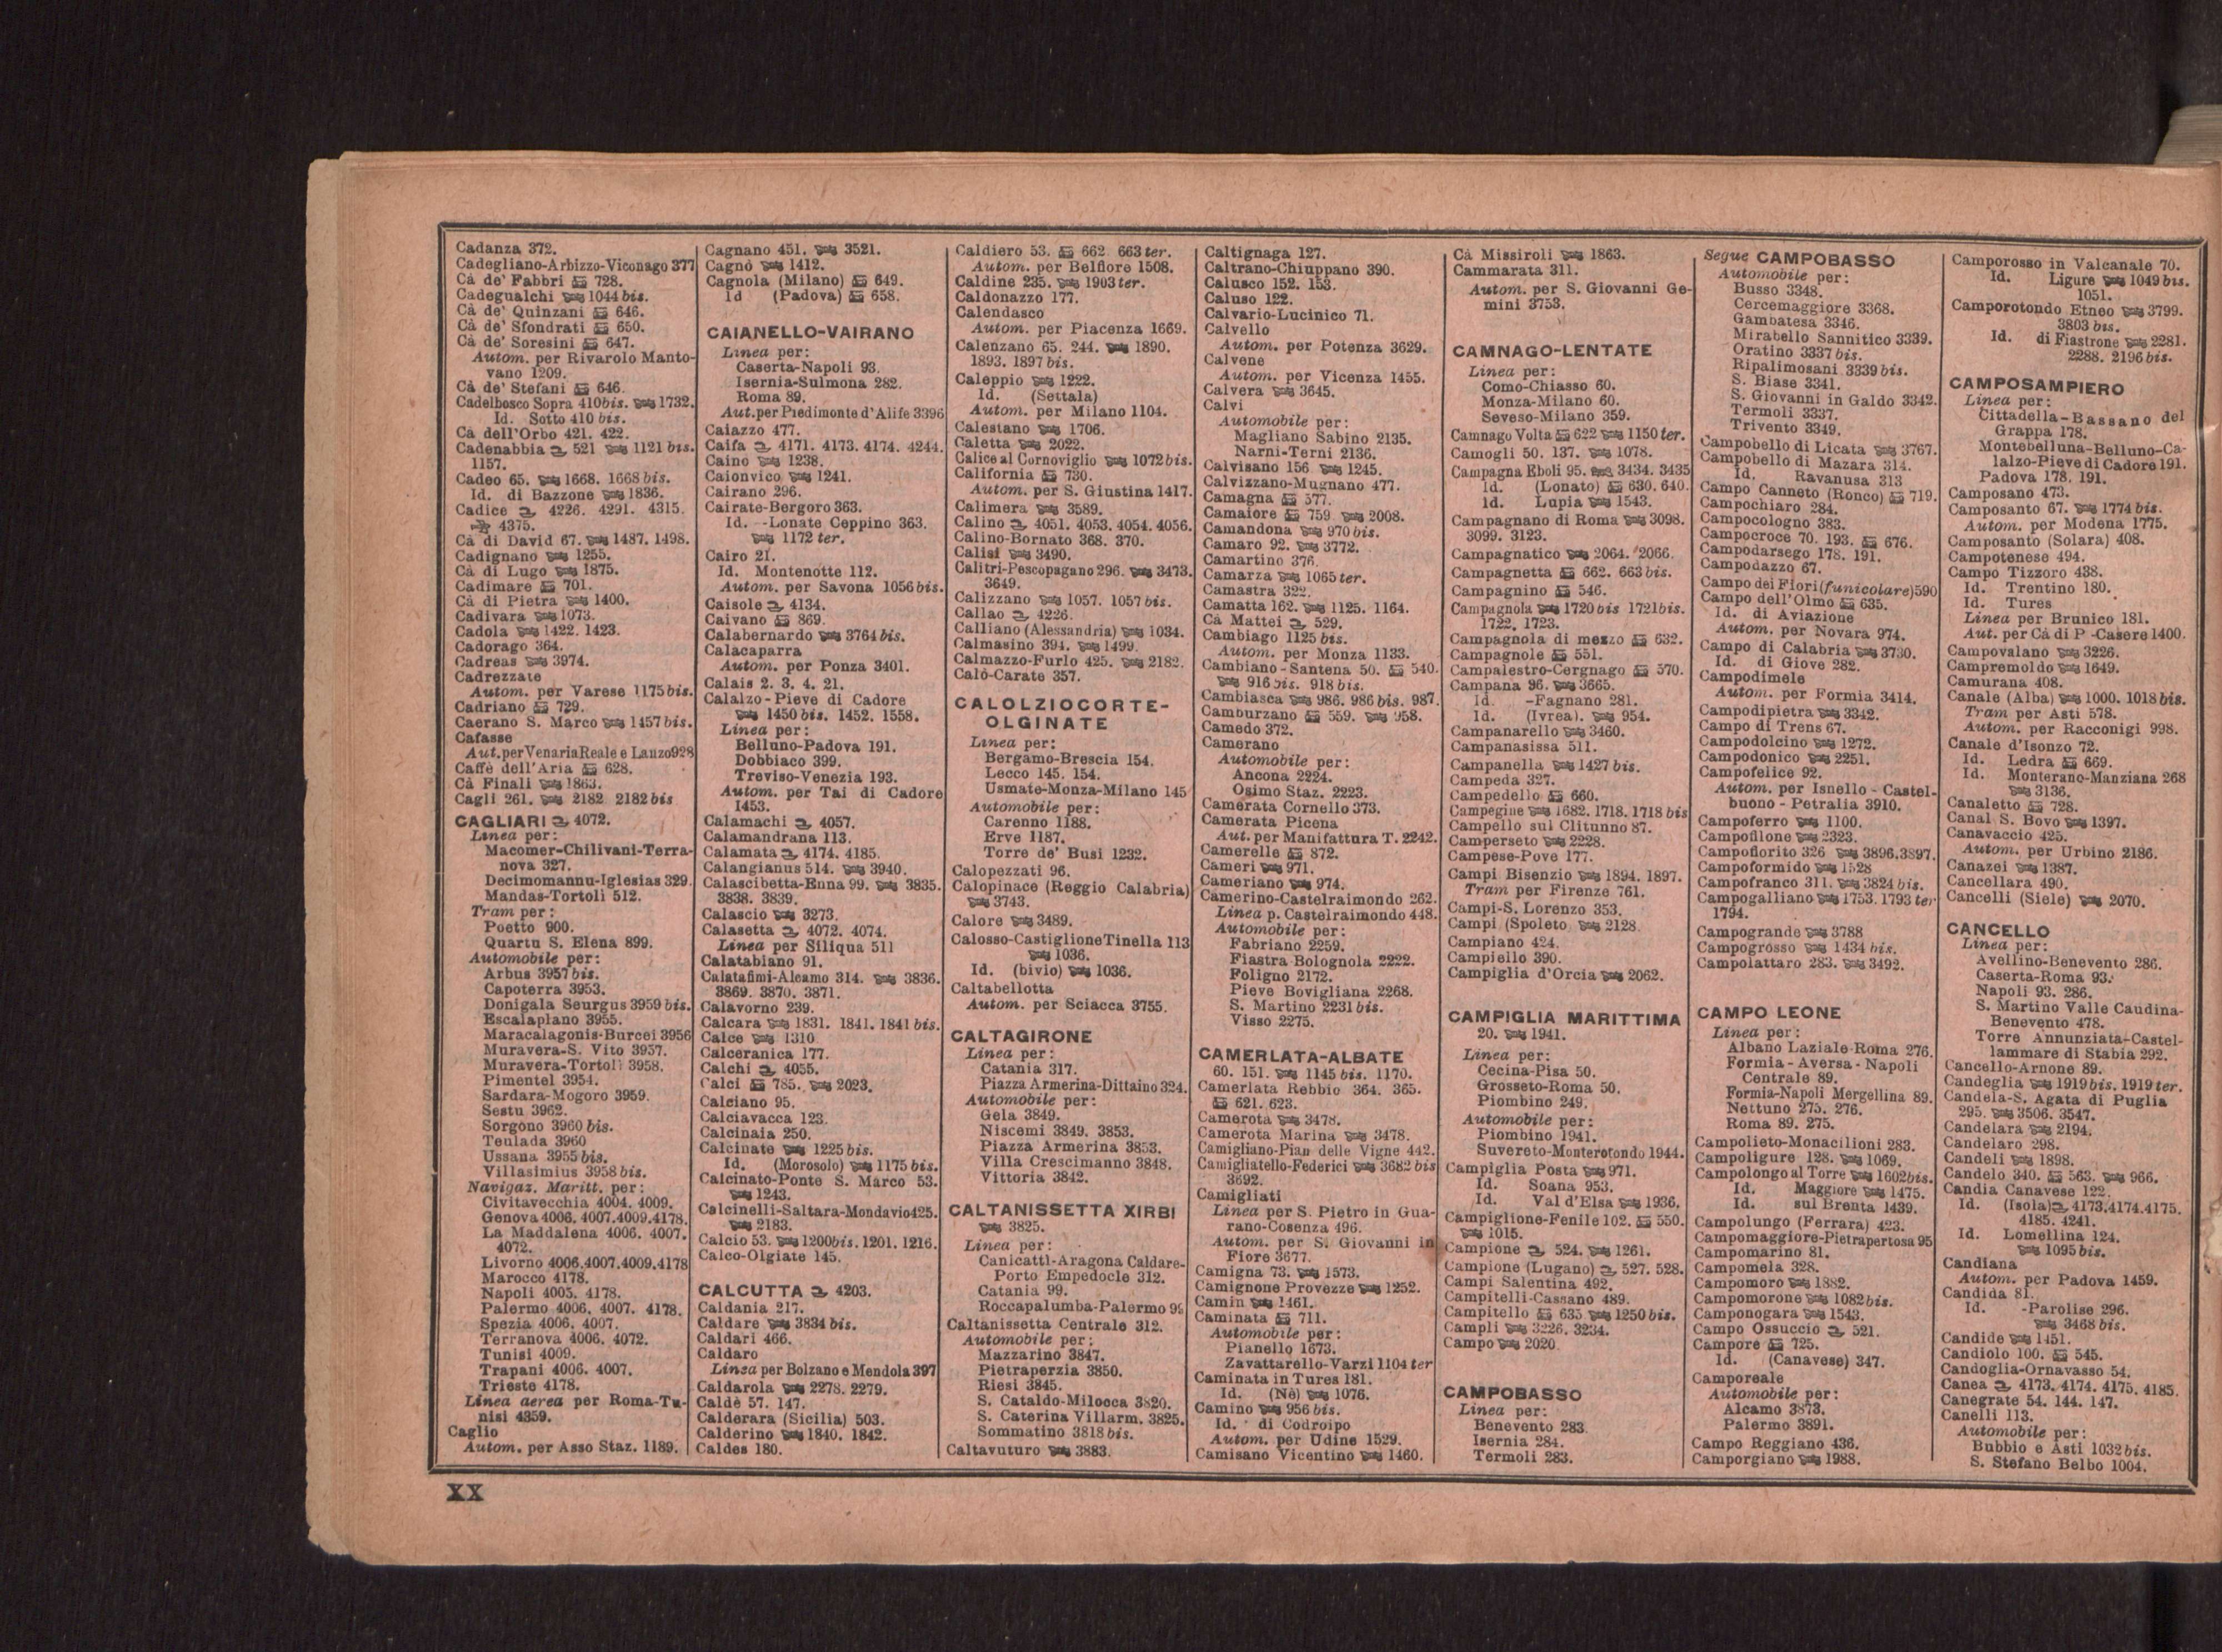 Cadanza 372.
Cadegliano-Arbizzo-Viconago 377
Cà de' Fabbri 728.
Cadegualchi 1044 bis.
Cà de' Quinzani 646.
Cà de' Sfondrati 650.
Cà de' Soresini 647.
Autom. per Rivarolo Manto-
vano 1209.
Cà de' Stefani 646.
Cadelbosco Sopra 410bis. 1732.
Id. Sotto 410 bis.
Cà dell'Orbo 421. 422.
Cadenabbia 521 1121 bis.
1157.
Cadeo 65. 1668. 1668 bis.
Id. di Bazzone 1836.
Cadice 4226. 4291. 4315.
4375.
Cà di David 67. 1487. 1498.
Cadignano 1255.
Cà di Lugo 1875.
Cadimare 701.
Cà di Pietra 1400.
Cadivara 1073.
Cadola 1422. 1423.
Cadorago 364.
Cadreas 3974.
Cadrezzate
Autom. per Varese 1175bis.
Cadriano 729.
Caerano S. Marco 1457 bis.
Cafasse
Aut. per Venaria Reale e Lanzo 928
Caffè dell'Aria 628.
Cà Finali 1863.
Cagli 261. 2182 2182 bis
CAGLIARI 4072.
Linea per:
Macomer-Chilivani-Terra-
nova 327.
Decimomannu-Iglesias 329.
Mandas-Tortolì 512.
Tram per:
Poetto 900.
Quartu S. Elena 899.
Automobile per:
Arbus 3957 bis.
Capoterra 3953.
Donigala Seurgus 3959 bis.
Escalaplano 3955.
Maracalagonis-Burcei 3956
Muravera-S. Vito 3957.
Muravera-Tortolì 3958.
Pimentel 3954.
Sardara-Mogoro 3959.
Sestu 3962.
Sorgono 3960 bis.
Teulada 3960
Ussana 3955 bis.
Villasimius 3958 bis.
Navigaz. Maritt. per:
Civitavecchia 4004. 4009.
Genova 4006. 4007. 4009. 4178.
La Maddalena 4006. 4007.
4072.
Livorno 4006. 4007. 4009. 4178
Marocco 4178.
Napoli 4005. 4178.
Palermo 4006. 4007. 4178.
Spezia 4006. 4007.
Terranova 4006. 4072.
Tunisi 4009.
Trapani 4006. 4007.
Trieste 4178.
Linea aerea per Roma-Tu-
nisi 4359.
Caglio
Autom. per Asso Staz. 1189.
Cagnano 451. 3521.
Cagnò 1412.
Cagnola (Milano) 649.
Id (Padova) 658.
CAIANELLO-VAIRANO
Linea per:
Caserta-Napoli 93.
Isernia-Sulmona 282.
Roma 89.
Aut. per Piedimonte d'Alife 3396
Caiazzo 477.
Caifa 4171. 4173. 4174. 4244.
Caino 1238.
Caionvico 1241.
Cairano 296.
Cairate-Bergoro 363.
Id. -Lonate Ceppino 363.
1172 ter.
Cairo 21.
Id. Montenotte 112.
Autom. per Savona 1056 bis.
Caisole 4134.
Caivano 869.
Calabernardo 3764 bis.
Calacaparra
Autom. per Ponza 3401.
Calais 2. 3. 4. 21.
Calalzo-Pieve di Cadore
1450 bis. 1452. 1558.
Linea per:
Belluno-Padova 191.
Dobbiaco 399.
Treviso-Venezia 193.
Autom. per Tai di Cadore
1453.
Calamachi 4057.
Calamandrana 113.
Calamata 4174. 4185.
Calangianus 514. 3940.
Calascibetta-Enna 99. 3835.
3838. 3839.
Calascio 3273.
Calasetta 4072. 4074.
Linea per Siliqua 511
Calatabiano 91.
Calatafimi-Alcamo 314. 3836.
3869. 3870. 3871.
Calavorno 239.
Calcara 1831. 1841. 1841 bis.
Calce 1310
Calceranica 177.
Calchi 4055.
Calci 785. 2023.
Calciano 95.
Calciavacca 123.
Calcinaia 250.
Calcinate 1225 bis.
Id. (Morosolo) 1175 bis.
Calcinato-Ponte S. Marco 53.
1243.
Calcinelli-Saltara-Mondavio 425.
2183.
Calcio 53. 1200bis. 1201. 1216.
Calco-Olgiate 145.
CALCUTTA 4203.
Caldania 217.
Caldare 3834 bis.
Caldari 466.
Caldaro
Linea per Bolzano e Mendola 397
Caldarola 2278. 2279.
Caldè 57. 147.
Calderara (Sicilia) 503.
Calderino 1840. 1842.
Caldes 180.
Caldiero 53. 662. 663 ter.
Autom. per Belfiore 1508.
Caldine 235. 1903 ter.
Caldonazzo 177.
Calendasco
Autom. per Piacenza 1669.
Calenzano 65. 244. 1890.
1893. 1897 bis.
Caleppio 1222.
Id. (Settala)
Autom. per Milano 1104.
Calestano 1706.
Caletta 2022.
Calice al Cornoviglio 1072 bis.
California 730.
Autom. per S. Giustina 1417.
Calimera 3589.
Calino 4051. 4053. 4054. 4056.
Calino-Bornato 368. 370.
Calisi 3490.
Calitri-Pescopagano 296. 3473.
3649.
Calizzano 1057. 1057 bis.
Callao 4226.
Calliano (Alessandria) 1034.
Calmasino 394. 1499.
Calmazzo-Furlo 425. 2182.
Calò-Carate 357.
CALOLZIOCORTE-
OLGINATE
Linea per:
Bergamo-Brescia 154.
Lecco 145. 154.
Usmate-Monza-Milano 145
Automobile per:
Carenno 1188.
Erve 1187.
Torre de' Busi 1232.
Calopezzati 96.
Calopinace (Reggio Calabria)
3743.
Calore 3489.
Calosso-Castiglione Tinella 113
1036.
Id. (bivio) 1036.
Caltabellotta
Autom. per Sciacca 3755.
CALTAGIRONE
Linea per:
Catania 317.
Piazza Armerina-Dittaino 324.
Automobile per:
Gela 3849.
Niscemi 3849. 3853.
Piazza Armerina 3853.
Villa Crescimanno 3848.
Vittoria 3842.
CALTANISSETTA XIRBI
3825.
Linea per:
Canicattì-Aragona Caldare-
Porto Empedocle 312.
Catania 99.
Roccapalumba-Palermo 99
Caltanissetta Centrale 312.
Automobile per:
Mazzarino 3847.
Pietraperzia 3850.
Riesi 3845.
S. Cataldo-Milocca 3820.
S. Caterina Villarm. 3825.
Sommatino 3818 bis.
Caltavuturo 3883.
Caltignaga 127.
Caltrano-Chiuppano 390.
Calusco 152. 153.
Caluso 122.
Calvario-Lucinico 71.
Calvello
Autom. per Potenza 3629.
Calvene
Autom. per Vicenza 1455.
Calvera 3645.
Calvi
Automobile per:
Magliano Sabino 2135.
Narni-Terni 2136.
Calvisano 156 1245.
Calvizzano-Mugnano 477.
Camagna 577.
Camaiore 759. 2008.
Camandona 970 bis.
Camaro 92. 3772.
Camartino 376.
Camarza 1065 ter.
Camastra 322.
Camatta 162. 1125. 1164.
Cà Mattei 529.
Cambiago 1125 bis.
Autom. per Monza 1133.
Cambiano-Santena 50. 540.
916 bis. 918 bis.
Cambiasca 986. 986 bis. 987.
Camburzano 559. 958.
Camedo 372.
Camerano
Automobile per:
Ancona 2224.
Osimo Staz. 2223.
Camerata Cornello 373.
Camerata Picena
Aut. per Manifattura T. 2242.
Camerelle 872.
Cameri 971.
Cameriano 974.
Camerino-Castelraimondo 262.
Linea p. Castelraimondo 448.
Automobile per:
Fabriano 2259.
Fiastra-Bolognola 2222.
Foligno 2172.
Pieve Bovigliana 2268.
S. Martino 2231 bis.
Visso 2275.
CAMERLATA-ALBATE
60. 151. 1145 bis. 1170.
Camerlata Rebbio 364. 365.
621. 623.
Camerota 3478.
Camerota Marina 3478.
Camigliano-Pian delle Vigne 442.
Camigliatello-Federici 3682 bis
3692.
Camigliati
Linea per S. Pietro in Gua-
rano-Cosenza 496.
Autom. per S. Giovanni in
Fiore 3677.
Camigna 73. 1573.
Camignone Provezze 1252.
Camin 1461.
Caminata 711.
Automobile per:
Pianello 1673.
Zavattarello-Varzi 1104 ter
Caminata in Tures 181.
Id. (Nè) 1076.
Camino 956 bis.
Id. di Codroipo
Autom. per Udine 1529.
Camisano Vicentino 1460.
Cà Missiroli 1863.
Cammarata 311.
Autom. per S. Giovanni Ge-
mini 3753.
CAMNAGO-LENTATE
Linea per:
Como-Chiasso 60.
Monza-Milano 60.
Seveso-Milano 359.
Camnago Volta 622 1150 ter.
Camogli 50. 137. 1078.
Campagna Eboli 95. 3434. 3435
Id. (Lonato) 630. 640.
Id. Lupia 1543.
Campagnano di Roma 3098.
3099. 3123.
Campagnatico 2064. 2066.
Campagnetta 662. 663 bis.
Campagnino 546.
Campagnola 1720 bis 1721bis.
1722. 1723.
Campagnola di mezzo 632.
Campagnole 551.
Campalestro-Cergnago 570.
Campana 96. 3665.
Id. -Fagnano 281.
Id. (Ivrea). 954.
Campanarello 3460.
Campanasissa 511.
Campanella 1427 bis.
Campeda 327.
Campedello 660.
Campegine 1682. 1718. 1718 bis
Campello sul Clitunno 87.
Camperseto 2228.
Campese-Pove 177.
Campi Bisenzio 1894. 1897.
Tram per Firenze 761.
Campi-S. Lorenzo 353.
Campi (Spoleto 2128.
Campiano 424.
Campiello 390.
Campiglia d'Orcia 2062.
CAMPIGLIA MARITTIMA
20. 1941.
Linea per:
Cecina-Pisa 50.
Grosseto-Roma 50.
Piombino 249.
Automobile per:
Piombino 1941.
Suvereto-Monterotondo 1944.
Campiglia Posta 971.
Id. Soana 953.
Id. Val d'Elsa 1936.
Campiglione-Fenile 102. 550.
1015.
Campione 524. 1261.
Campione (Lugano) 527. 528.
Campi Salentina 492.
Campitelli-Cassano 489.
Campitello 635 1250 bis.
Campli 3226. 3234.
Campo 2020
CAMPOBASSO
Linea per:
Benevento 283
Isernia 284.
Termoli 283.
Segue CAMPOBASSO
Automobile per:
Busso 3348.
Cercemaggiore 3368.
Gambatesa 3346.
Mirabello Sannitico 3339.
Oratino 3337 bis.
Ripalimosani 3339 bis.
S. Biase 3341.
S. Giovanni in Galdo 3342.
Termoli 3337.
Trivento 3349.
Campobello di Licata 3767.
Campobello di Mazara 314.
Id. Ravanusa 313
Campo Canneto (Ronco) 719.
Campochiaro 284.
Campocologno 383.
Campocroce 70. 193. 676.
Campodarsego 178. 191.
Campodazzo 67.
Campo dei Fiori (funicolare) 590
Campo dell'Olmo 635.
Id. di Aviazione
Autom. per Novara 974.
Campo di Calabria 3730.
Id. di Giove 282.
Campodimele
Autom. per Formia 3414.
Campodipietra 3342.
Campo di Trens 67.
Campodolcino 1272.
Campodonico 2251.
Campofelice 92.
Autom. per Isnello-Castel-
buono-Petralia 3910.
Campoferro 1100.
Campofilone 2323.
Campofiorito 326 3896. 3897.
Campoformido 1528
Campofranco 311. 3824 bis.
Campogalliano 1753. 1793 ter
1794.
Campogrande 3788
Campogrosso 1434 bis.
Campolattaro 283. 3492.
CAMPO LEONE
Linea per:
Albano Laziale-Roma 276.
Formia-Aversa-Napoli
Centrale 89.
Formia-Napoli Mergellina 89.
Nettuno 275. 276.
Roma 89. 275.
Campolieto-Monacilioni 283.
Campoligure 128. 1069.
Campolongo al Torre 1602bis.
Id. Maggiore 1475.
Id. sul Brenta 1439.
Campolungo (Ferrara) 423.
Campomaggiore-Pietrapertosa 95
Campomarino 81.
Campomela 328.
Campomoro 1882.
Campomorone 1082 bis.
Camponogara 1543.
Campo Ossuccio 521.
Campore 725.
Id. (Canavese) 347.
Camporeale
Automobile per:
Alcamo 3873.
Palermo 3891.
Campo Reggiano 436.
Camporgiano 1988.
Camporosso in Valcanale 70.
Id. Ligure 1049 bis.
1051.
Camporotondo Etneo 3799.
3803 bis.
Id. di Fiastrone 2281.
2288. 2196 bis.
CAMPOSAMPIERO
Linea per:
Cittadella-Bassano del
Grappa 178.
Montebelluna-Belluno-Ca-
lalzo-Pieve di Cadore 191.
Padova 178. 191.
Camposano 473.
Camposanto 67. 1774 bis.
Autom. per Modena 1775.
Camposanto (Solara) 408.
Campotenese 494.
Campo Tizzoro 438.
Id. Trentino 180.
Id. Tures
Linea per Brunico 181.
Aut. per Cà di P -Casere 1400.
Campovalano 3226.
Campremoldo 1649.
Camurana 408.
Canale (Alba) 1000. 1018 bis.
Tram per Asti 578.
Autom. per Racconigi 998.
Canale d'Isonzo 72.
Id. Ledra 669.
Id. Monterano-Manziana 268
3136.
Canaletto 728.
Canal S. Bovo 1397.
Canavaccio 425.
Autom. per Urbino 2186.
Canazei 1387.
Cancellara 490.
Cancelli (Siele) 2070.
CANCELLO
Linea per:
Avellino-Benevento 286.
Caserta-Roma 93.
Napoli 93. 286.
S. Martino Valle Caudina-
Benevento 478.
Torre Annunziata-Castel-
lammare di Stabia 292.
Cancello-Arnone 89.
Candeglia 1919 bis. 1919 ter.
Candela-S. Agata di Puglia
295. 3506. 3547.
Candelara 2194.
Candelaro 298.
Candeli 1898.
Candelo 340. 563. 966.
Candia Canavese 122.
Id. (Isola) 4173. 4174. 4175.
4185. 4241.
Id. Lomellina 124.
1095 bis.
Candiana
Autom. per Padova 1459.
Candida 81.
Id. -Parolise 296.
3468 bis.
Candide 1451.
Candiolo 100. 545.
Candoglia-Ornavasso 54.
Canea 4173. 4174. 4175. 4185.
Canegrate 54. 144. 147.
Canelli 113.
Automobile per:
Bubbio e Asti 1032 bis.
S. Stefano Belbo 1004.
XX